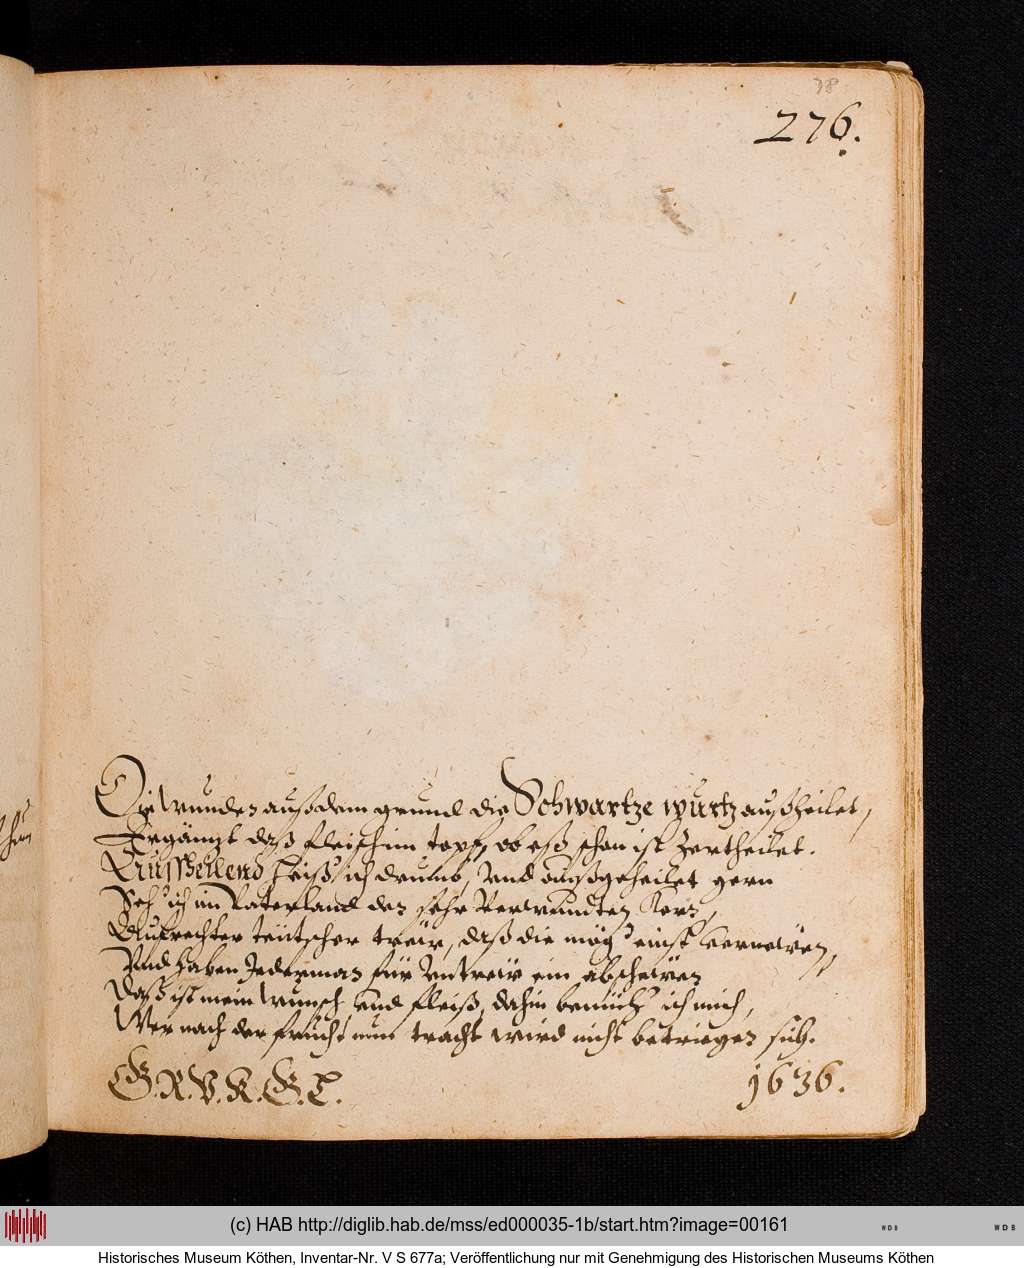 38
276.
Die Wunden auß dem grund die Schwartze wurtz außheilet,
Ergäntzt daß fleisch im topf, ob eß schon ist Zertheilet.
Außheilend heiß ich drumb, Und außgeheilet gern
Seh ich im Vaterland den sehr Verwundten Kern,
Aufrechter teütscher treüe, daß die mög einst verneüen,
Und haben Jederman für Untreüe ein abscheüen
Daß ist mein Wunsch und fleiß, dahin bemüh ich mich,
Wer nach der frucht nun tracht wird nicht betriegen sich.
G. R. V. K. G. C.
1636.
(c) HAB http://diglib.hab.de/mss/ed000035-1b/start.htm?image=00161
WDB
WDB
Historisches Museum Köthen, Inventar-Nr. V S 677a; Veröffentlichung nur mit Genehmigung des Historischen Museums Köthen